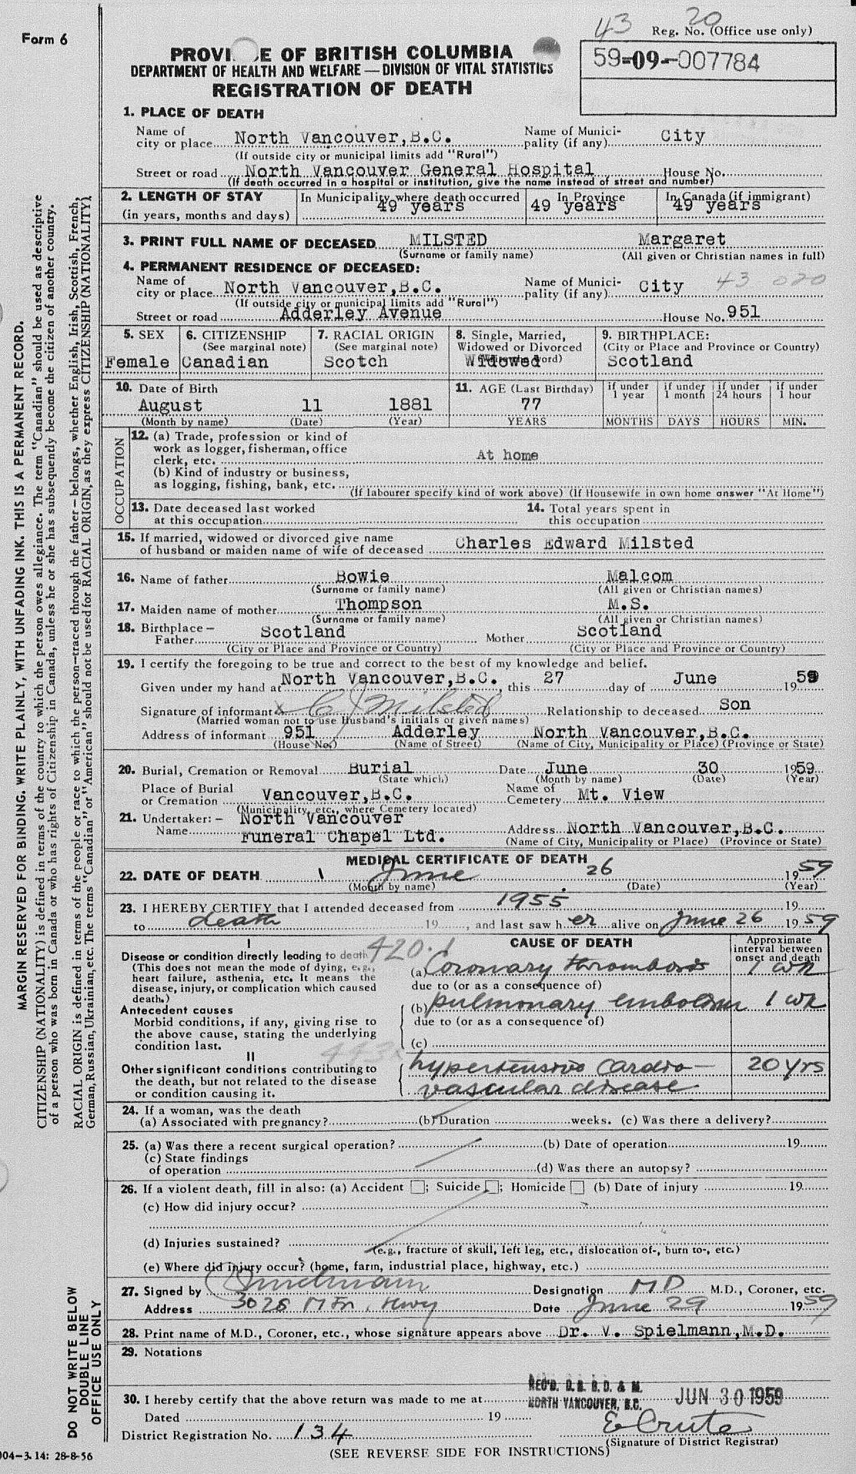 Form 6
43 20
Reg. No. (Office use only)
59-09-007784
PROVI E OF BRITISH COLUMBIA
DEPARTMENT OF HEALTH AND WELFARE — DIVISION OF VITAL STATISTICS
REGISTRATION OF DEATH
1. PLACE OF DEATH
Name of city or place North Vancouver,B.C. Name of Munici-pality (if any) City
(If outside city or municipal limits add "Rural")
Street or road North Vancouver General Hospital House No.
(If death occurred in a hospital or institution, give the name instead of street and number)
2. LENGTH OF STAY In Municipality where death occurred In Province In Canada (if immigrant)
(in years, months and days) 49 years 49 years 49 years
3. PRINT FULL NAME OF DECEASED MILSTED Margaret
(Surname or family name) (All given or Christian names in full)
4. PERMANENT RESIDENCE OF DECEASED:
Name of city or place North Vancouver,B.C. Name of Munici-pality (if any) City 43 020
(If outside city or municipal limits add "Rural")
Street or road Adderley Avenue House No. 951
5. SEX 6. CITIZENSHIP 7. RACIAL ORIGIN 8. Single, Married, 9. BIRTHPLACE:
(See marginal note) (See marginal note) Widowed or Divorced (City or Place and Province or Country)
Female Canadian Scotch Widowed Scotland
10. Date of Birth 11. AGE (Last Birthday) if under 1 year if under 1 month if under 24 hours if under 1 hour
August 11 1881 77
(Month by name) (Date) (Year) YEARS MONTHS DAYS HOURS MIN.
OCCUPATION
12. (a) Trade, profession or kind of
work as logger, fisherman, office
clerk, etc. At home
(b) Kind of industry or business,
as logging, fishing, bank, etc.
(If labourer specify kind of work above) (If Housewife in own home answer "At Home")
13. Date deceased last worked 14. Total years spent in
at this occupation this occupation
15. If married, widowed or divorced give name
of husband or maiden name of wife of deceased Charles Edward Milsted
16. Name of father Bowie Malcom
(Surname or family name) (All given or Christian names)
17. Maiden name of mother Thompson M.S.
(Surname or family name) (All given or Christian names)
18. Birthplace—
Father Scotland Mother Scotland
(City or Place and Province or Country) (City or Place and Province or Country)
19. I certify the foregoing to be true and correct to the best of my knowledge and belief.
Given under my hand at North Vancouver,B.C. , this 27 day of June 1959
Signature of informant x C J Milsted Relationship to deceased Son
(Married woman not to use Husband's initials or given names)
Address of informant 951 Adderley North Vancouver,B.C.
(House No.) (Name of Street) (Name of City, Municipality or Place) (Province or State)
20. Burial, Cremation or Removal Burial Date June 30 1959
(State which) (Month by name) (Date) (Year)
Place of Burial or Cremation Vancouver,B.C. Name of Cemetery Mt. View
(Municipality, etc., where Cemetery located)
21. Undertaker:— North Vancouver
Name Funeral Chapel Ltd. Address North Vancouver,B.C.
(Name of City, Municipality or Place) (Province or State)
MEDICAL CERTIFICATE OF DEATH
22. DATE OF DEATH June 26 1959
(Month by name) (Date) (Year)
23. I HEREBY CERTIFY that I attended deceased from 1955 19
to death 19 , and last saw h er alive on June 26 1959
I CAUSE OF DEATH Approximate interval between onset and death
Disease or condition directly leading to death 420.1
(This does not mean the mode of dying, e.g., (a) Coronary thrombosis 1 wk
heart failure, asthenia, etc. It means the due to (or as a consequence of)
disease, injury, or complication which caused
death.) (b) pulmonary embolism 1 wk
Antecedent causes
Morbid conditions, if any, giving rise to due to (or as a consequence of)
the above cause, stating the underlying
condition last. (c)
II 443x
Other significant conditions contributing to hypertensive cardio- 20 yrs
the death, but not related to the disease vascular disease
or condition causing it.
24. If a woman, was the death
(a) Associated with pregnancy? (b) Duration weeks. (c) Was there a delivery?
25. (a) Was there a recent surgical operation? (b) Date of operation 19
(c) State findings
of operation (d) Was there an autopsy?
26. If a violent death, fill in also: (a) Accident ; Suicide ; Homicide (b) Date of injury 19
(c) How did injury occur?
(d) Injuries sustained?
(e.g., fracture of skull, left leg, etc., dislocation of-, burn to-, etc.)
(e) Where did injury occur? (home, farm, industrial place, highway, etc.)
27. Signed by Designation MD M.D., Coroner, etc.
Address 3028 Mtn. Hwy Date June 29 1959
28. Print name of M.D., Coroner, etc., whose signature appears above Dr. V. Spielmann,M.D.
29. Notations
30. I hereby certify that the above return was made to me at REC'D. D.R.B.D. & M. NORTH VANCOUVER, B.C. JUN 30 1959
Dated 19
District Registration No. 134 E Crute
(Signature of District Registrar)
(SEE REVERSE SIDE FOR INSTRUCTIONS)
004—3.14: 28-8-56
MARGIN RESERVED FOR BINDING. WRITE PLAINLY, WITH UNFADING INK. THIS IS A PERMANENT RECORD.
CITIZENSHIP (NATIONALITY) is defined in terms of the country to which the person owes allegiance. The term "Canadian" should be used as descriptive
of a person who was born in Canada or who has rights of Citizenship in Canada, unless he or she has subsequently become the citizen of another country.
RACIAL ORIGIN is defined in terms of the people or race to which the person—traced through the father—belongs, whether English, Irish, Scottish, French,
German, Russian, Ukrainian, etc. The terms "Canadian" or "American" should not be used for RACIAL ORIGIN, as they express CITIZENSHIP (NATIONALITY).
DO NOT WRITE BELOW
DOUBLE LINE
OFFICE USE ONLY